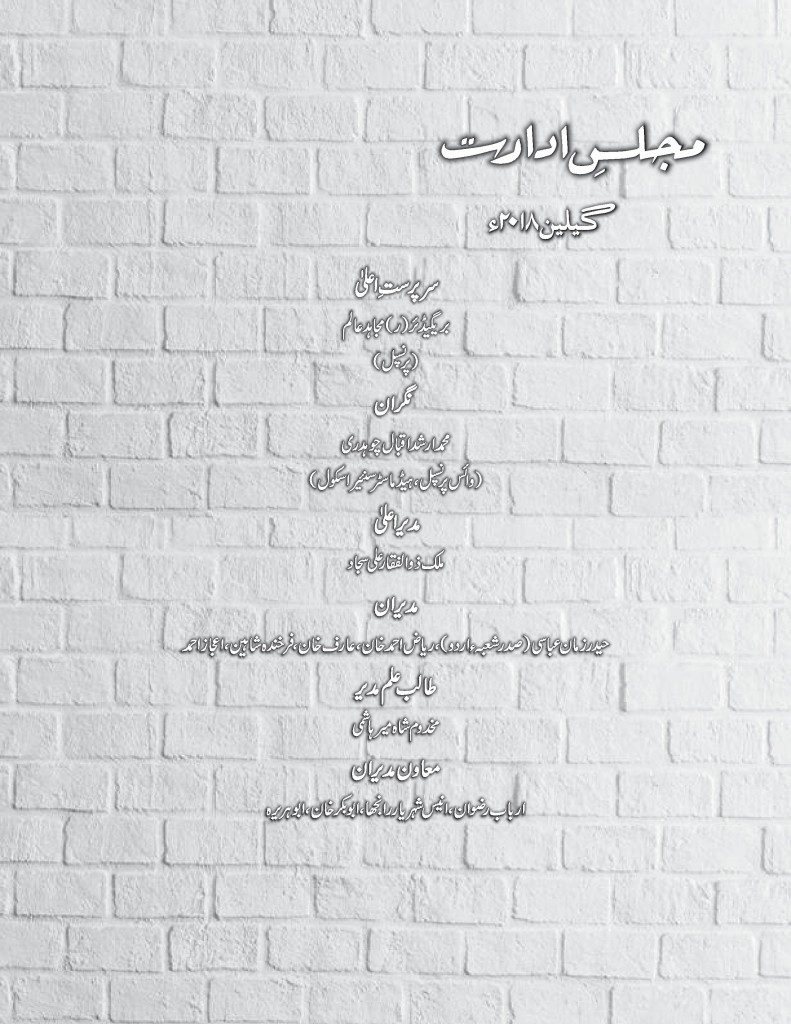 مجلسِ ادارت
گیلین ۲۰۱۸ء
سرپرستِ اعلیٰ
بریگیڈئر (ر) مجاہد عالم
(پرنسپل)
نگران
محمد ارشد اقبال چوہدری
(وائس پرنسپل، ہیڈ ماسٹر سنٹیر اسکول)
مدیر اعلیٰ
ملک ذوالفقار علی سجاد
مدیران
حیدر زمان عباسی (صدر شعبہ ء اردو)، ریاض احمد خان، عارف خان، فرخندہ شاہین، اعجاز احمد
طالب علم مدیر
مخدوم شاہ میر ہاشمی
معاون مدیران
ارباب رضوان، انیس شہریار رانجھا، ابوبکر خان، ابو ہریرہ